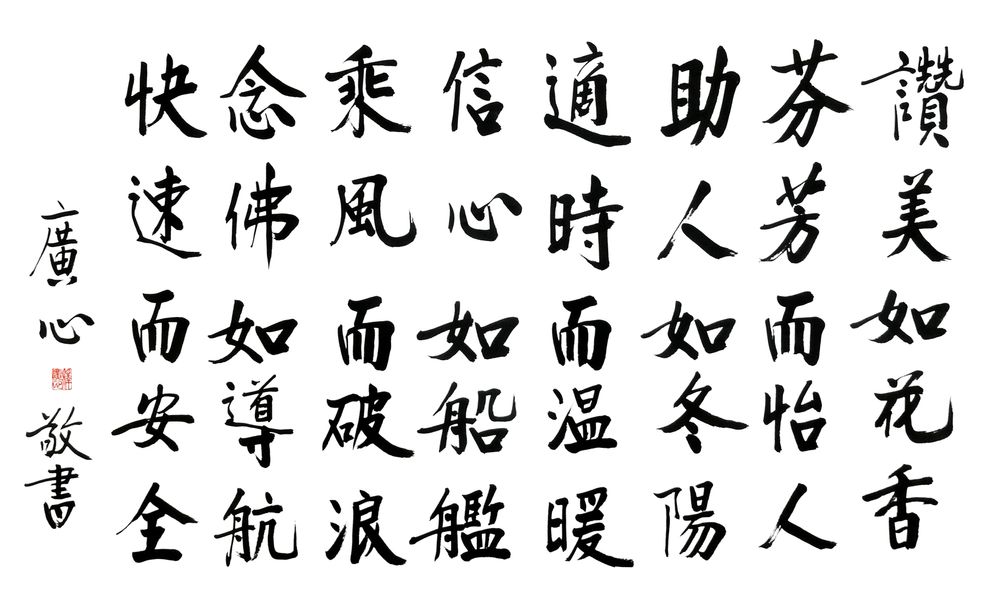 讚美如花香
芬芳而怡人
助人如冬陽
適時而溫暖
信心如船艦
乘風而破浪
念佛如導航
快速而安全
廣心敬書